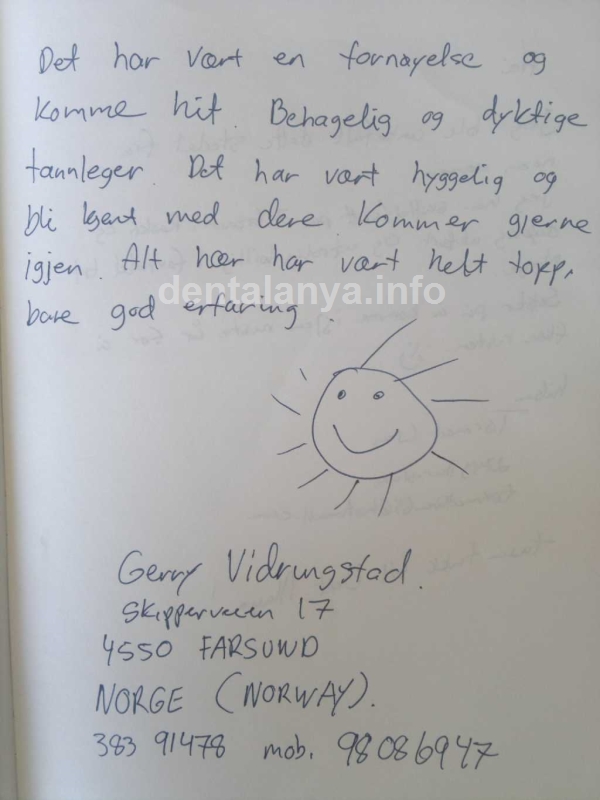 Det har vært en fornøyelse og
komme hit. Behagelig og dyktige
tannleger. Det har vært hyggelig og
bli kjent med dere. Kommer gjerne
igjen. Alt her har vært helt topp,
dentalanya.info
bare god erfaring.
Gerry Vidringstad.
Skipperveien 17
4550 FARSUND
NORGE (NORWAY).
383 91478 mob. 98086947